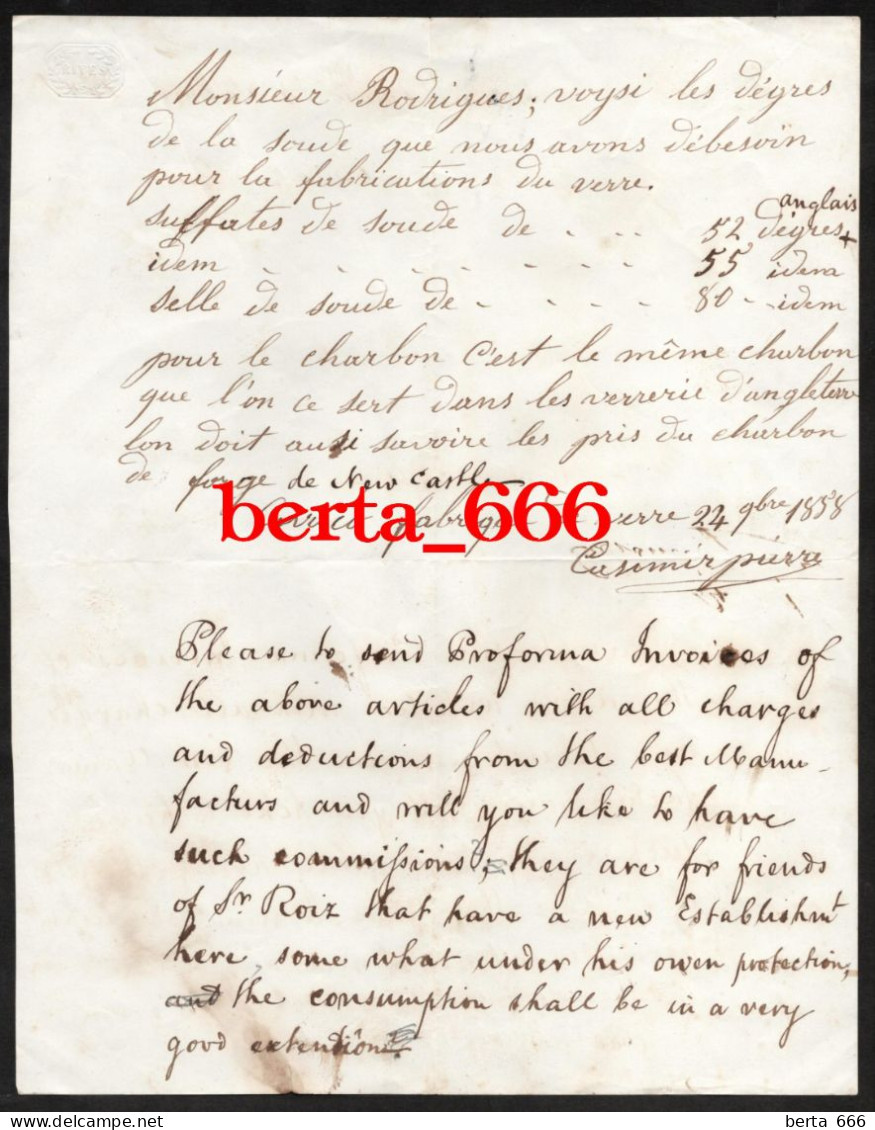 Monsieur Rodrigues; voysi les dégres
de la soude que nous avons débesoin
pour la fabrications du verre.
anglais
sulfates de soude de - - - 52 dégres +
idem - - - - - - - 55 idem
selle de soude de - - - - 80 - idem
pour le charbon c'est le même charbon
que l'on ce sert dans les verrerie d'angleterre
lon doit ausi savoire les pris du charbon
de forge de New Castle
berta_666
verre 24 9bre 1858
Casimir pierre
Please to send Proforma Invoices of
the above articles with all charges
and deductions from the best Manu-
facturs and will you like to have
such commissions, they are for friends
of Sr. Roiz that have a new Establishmt
here, some what under his owen protection,
and the consumption shall be in a very
good extendion
berta 666